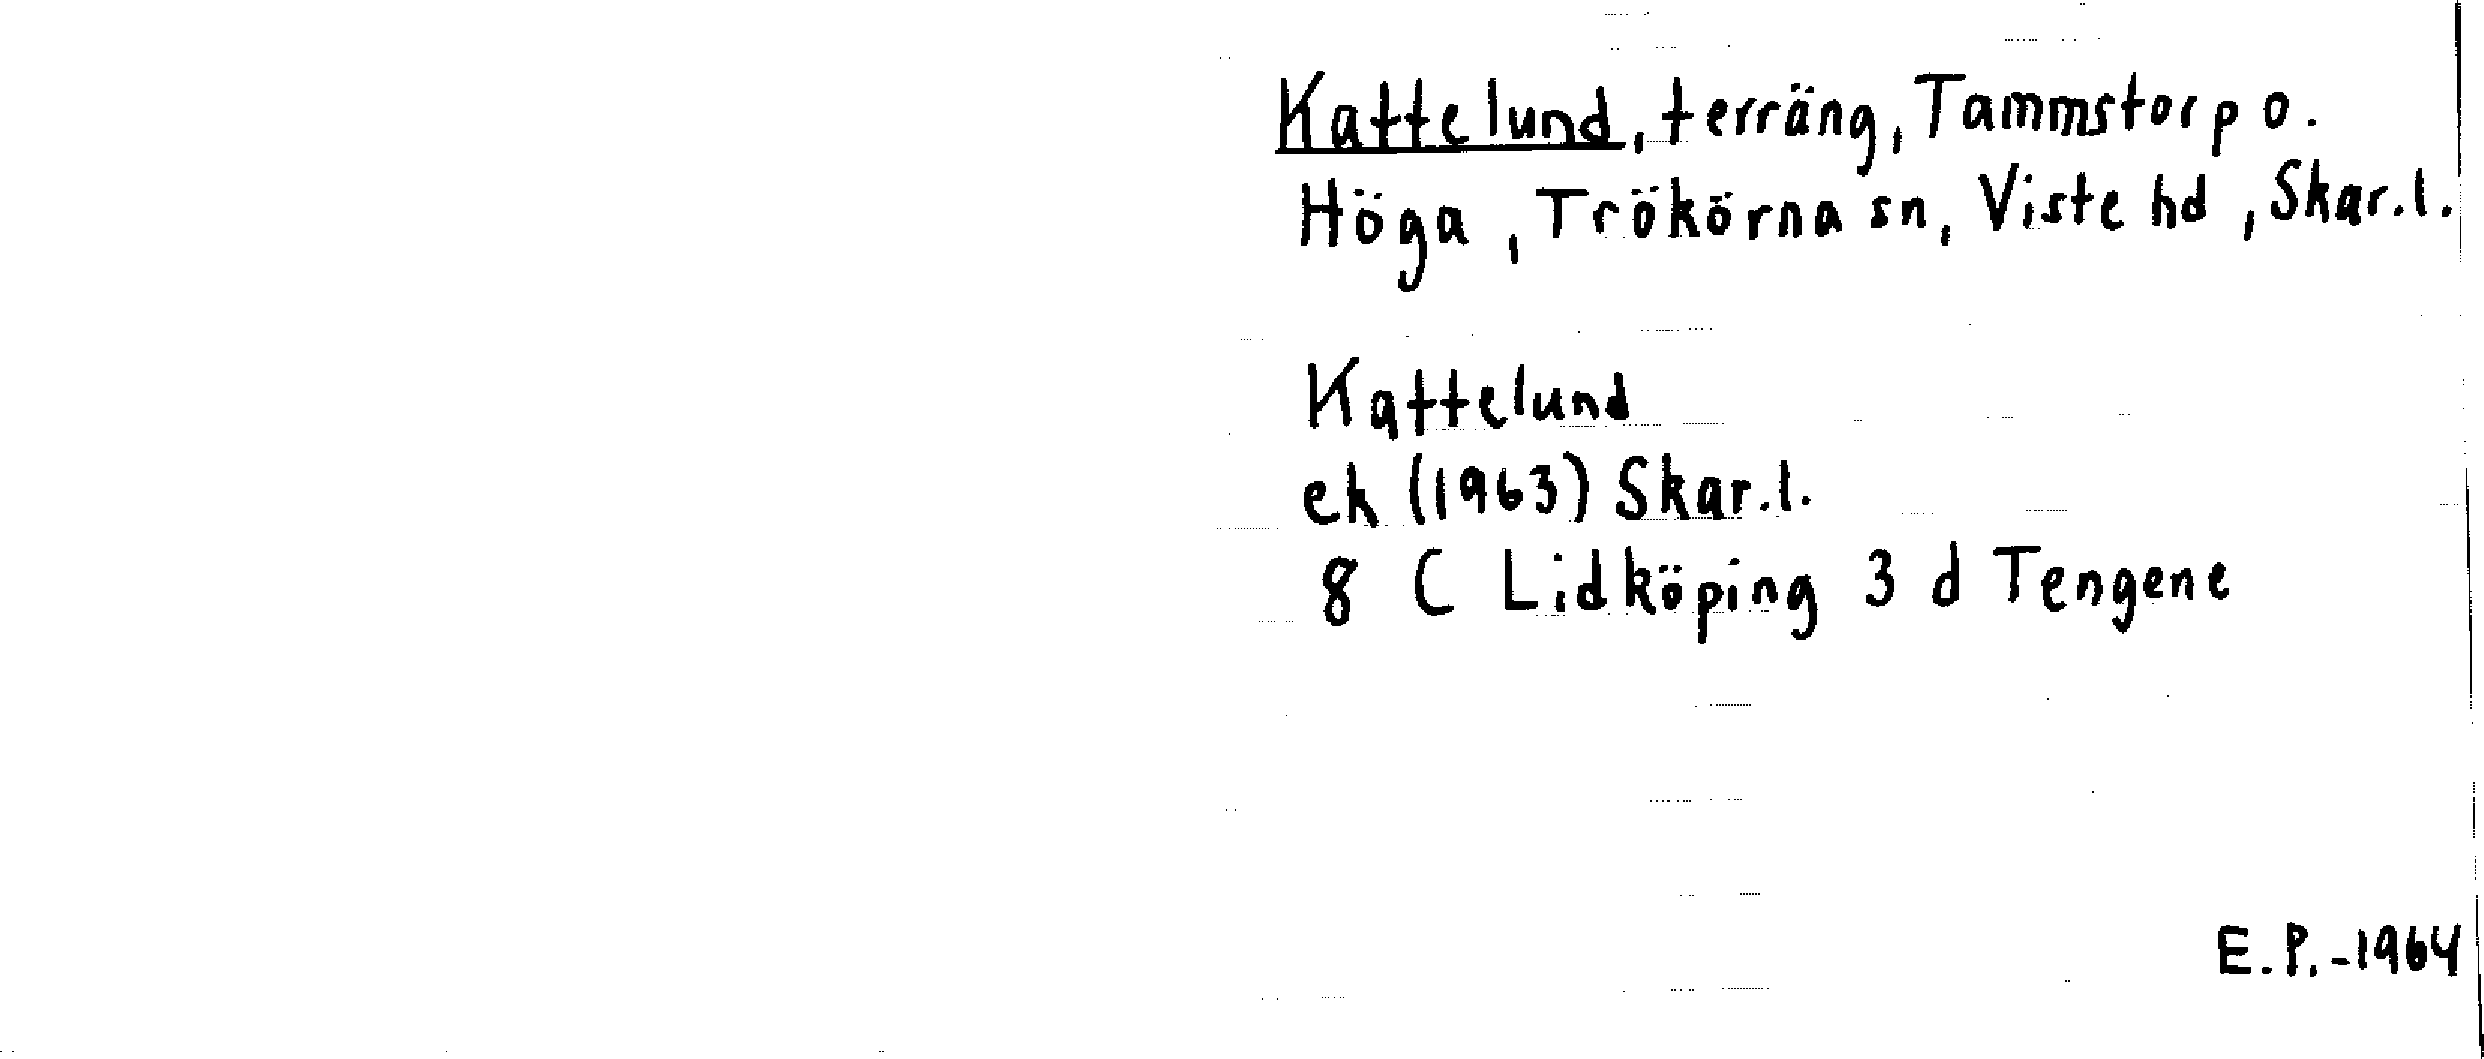 Kattelund, terräng, Tammstorp o.
Höga, Trökörna sn, Viste hd, Skar.l.
Kattelund
ek (1963) Skar.l.
8 C Lidköping 3 d Tengene
E.P.-1964